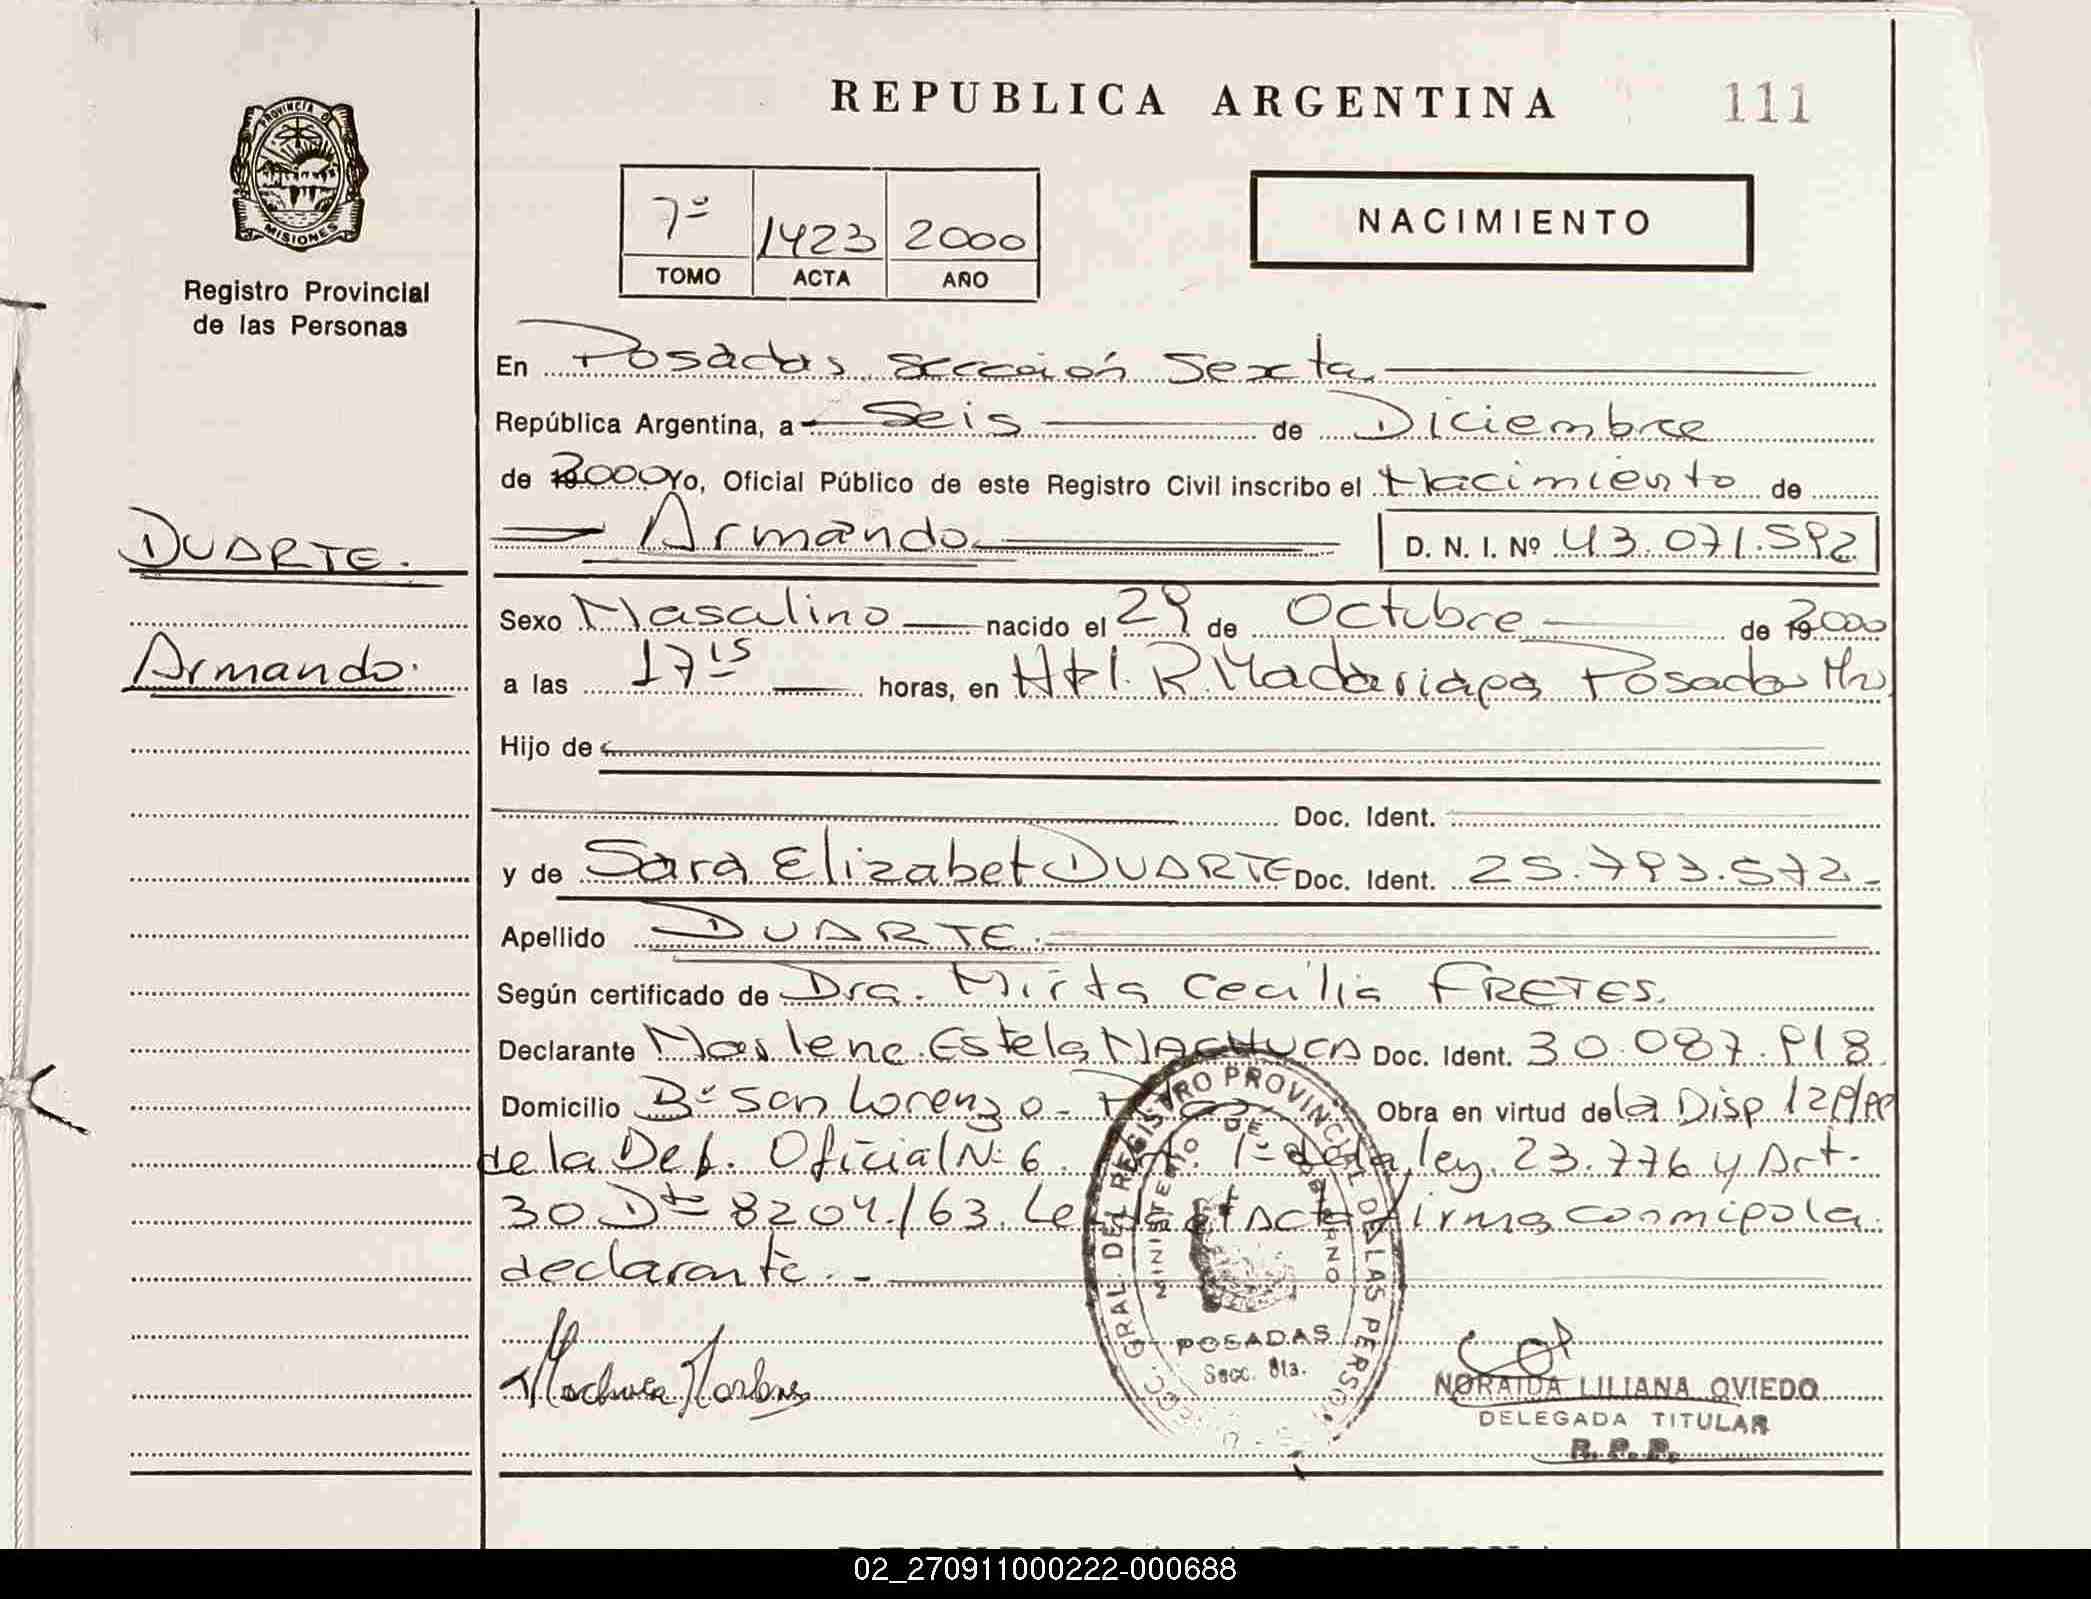 REPUBLICA ARGENTINA
111
PROVINCIA DE
MISIONES
Registro Provincial
de las Personas
7º 1423 2000
TOMO ACTA AÑO
NACIMIENTO
En Posadas sección Sexta
República Argentina, a Seis de Diciembre
de 2000 Yo, Oficial Público de este Registro Civil inscribo el Nacimiento de
DUARTE.
Armando D. N. I. Nº 43.071.592
Sexo Masculino nacido el 29 de Octubre de 2000
Armando.
a las 17 15 horas, en Htl. R. Madariaga Posadas Mnes
Hijo de
Doc. Ident.
y de Sara Elizabet DUARTE Doc. Ident. 25.793.572
Apellido DUARTE
Según certificado de Dra. Mirta Cecilia FRETES.
Declarante Marlene Estela MACHUCA Doc. Ident. 30.087.918
Domicilio Bº San Lorenzo - Obra en virtud de la Disp 129/99
de la Def. Oficial Nº 6. Art. 1º de la ley 23.776 y Art.
30 Dto 8204/63. Leída el Acta firma conmigo la
declarante.-
Machuca Marlene
DIRECC. GRAL. DEL REGISTRO PROVINCIAL DE LAS PERSONAS
MINISTERIO DE GOBIERNO
POSADAS
Secc. 6ta.
NORAIDA LILIANA OVIEDO
DELEGADA TITULAR
R. P. P.
02_270911000222-000688